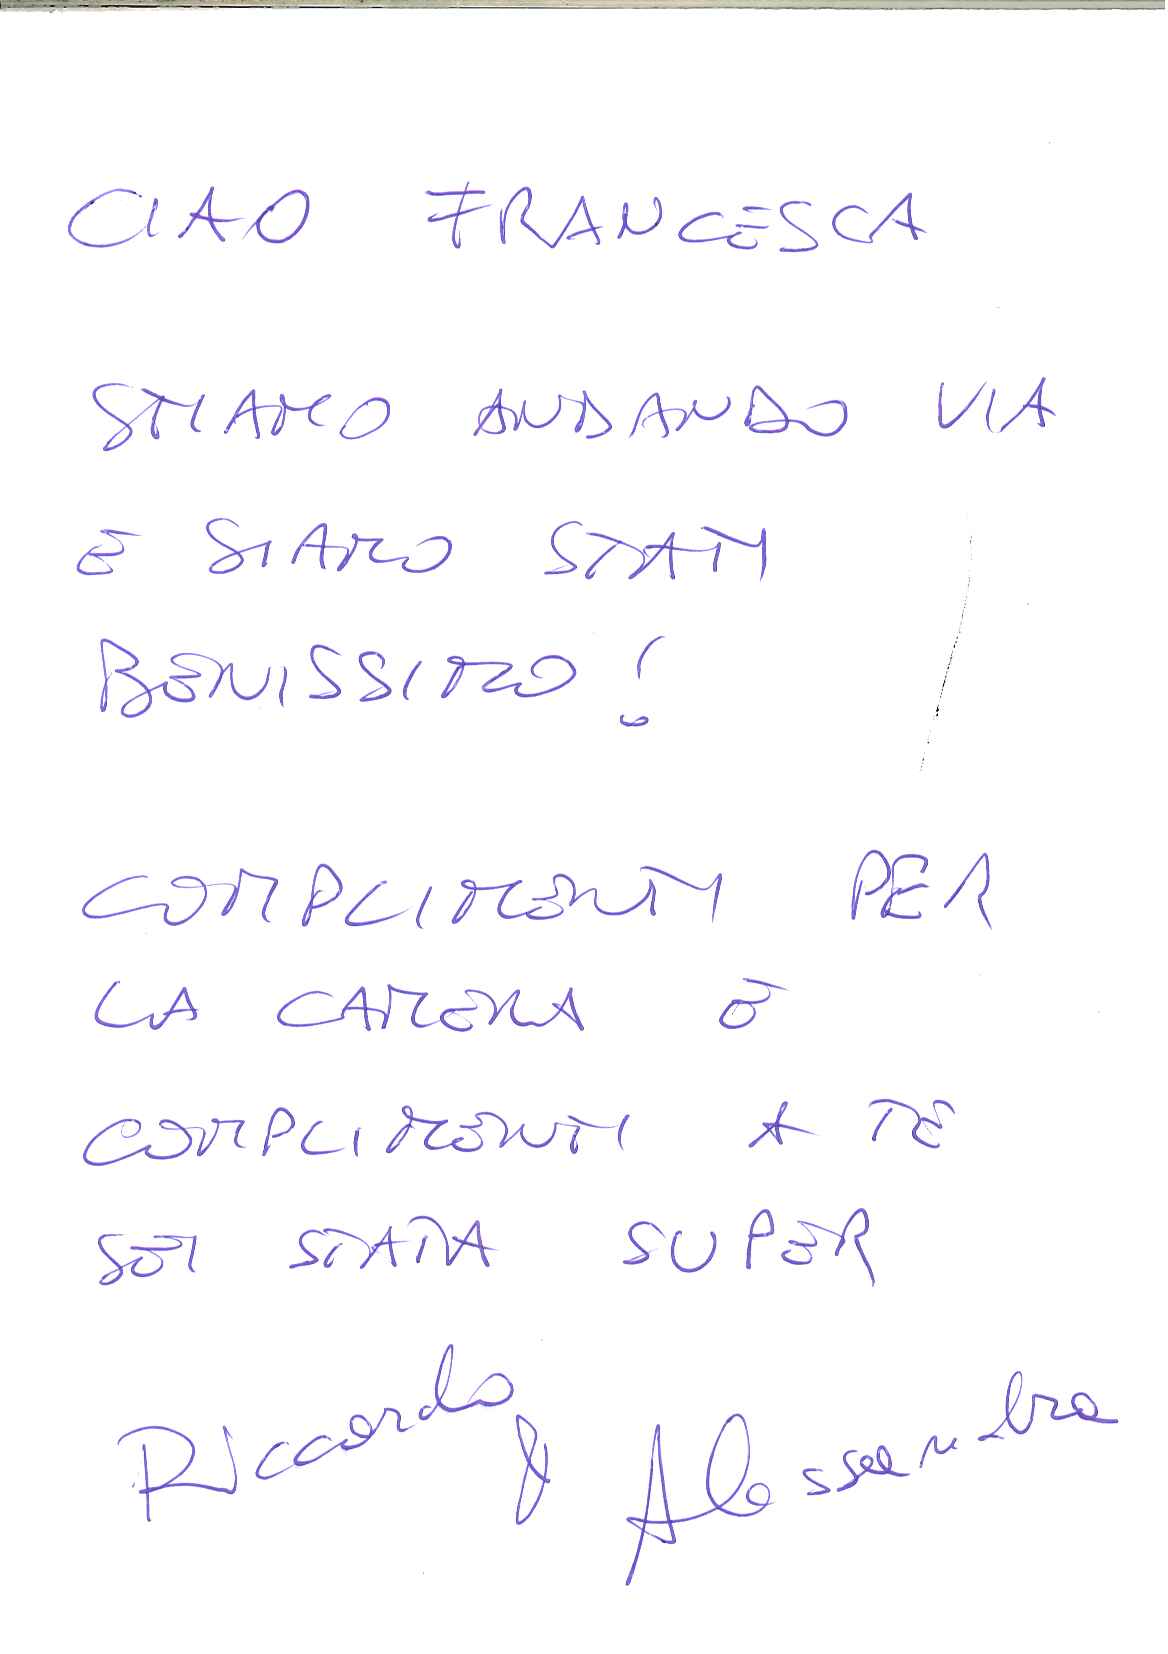 CIAO FRANCESCA
STIAMO ANDANDO VIA
E SIAMO STATI
BENISSIMO!
COMPLIMENTI PER
LA CAMERA E
COMPLIMENTI A TE
SEI STATA SUPER
Riccardo & Alessandra